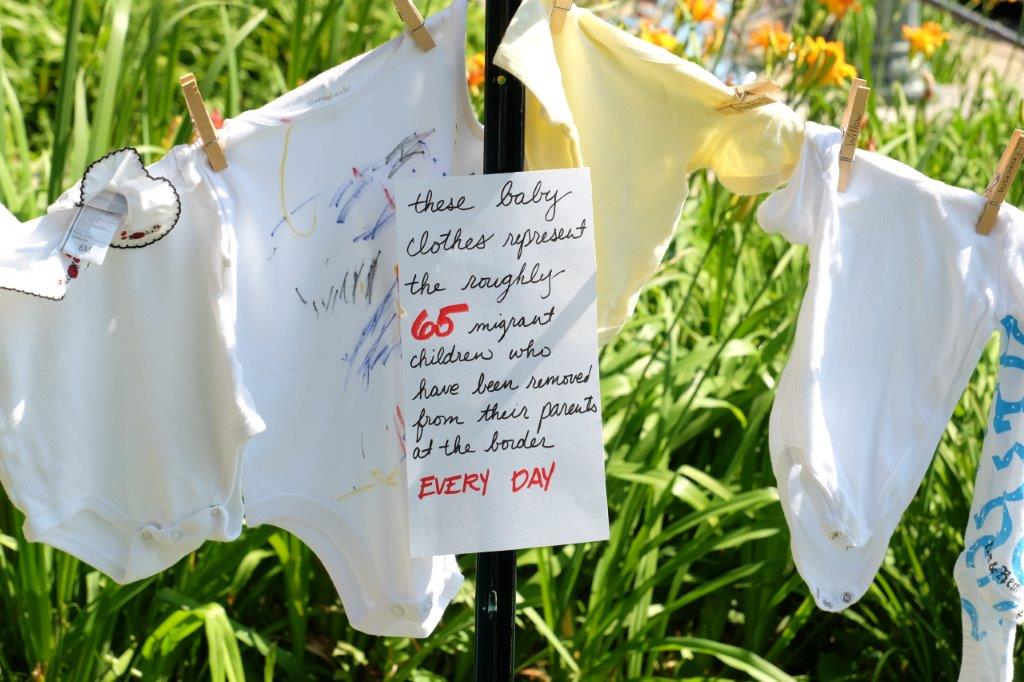 these baby
clothes represent
the roughly
65 migrant
children who
have been removed
from their parents
at the border
EVERY DAY
Willow
6M